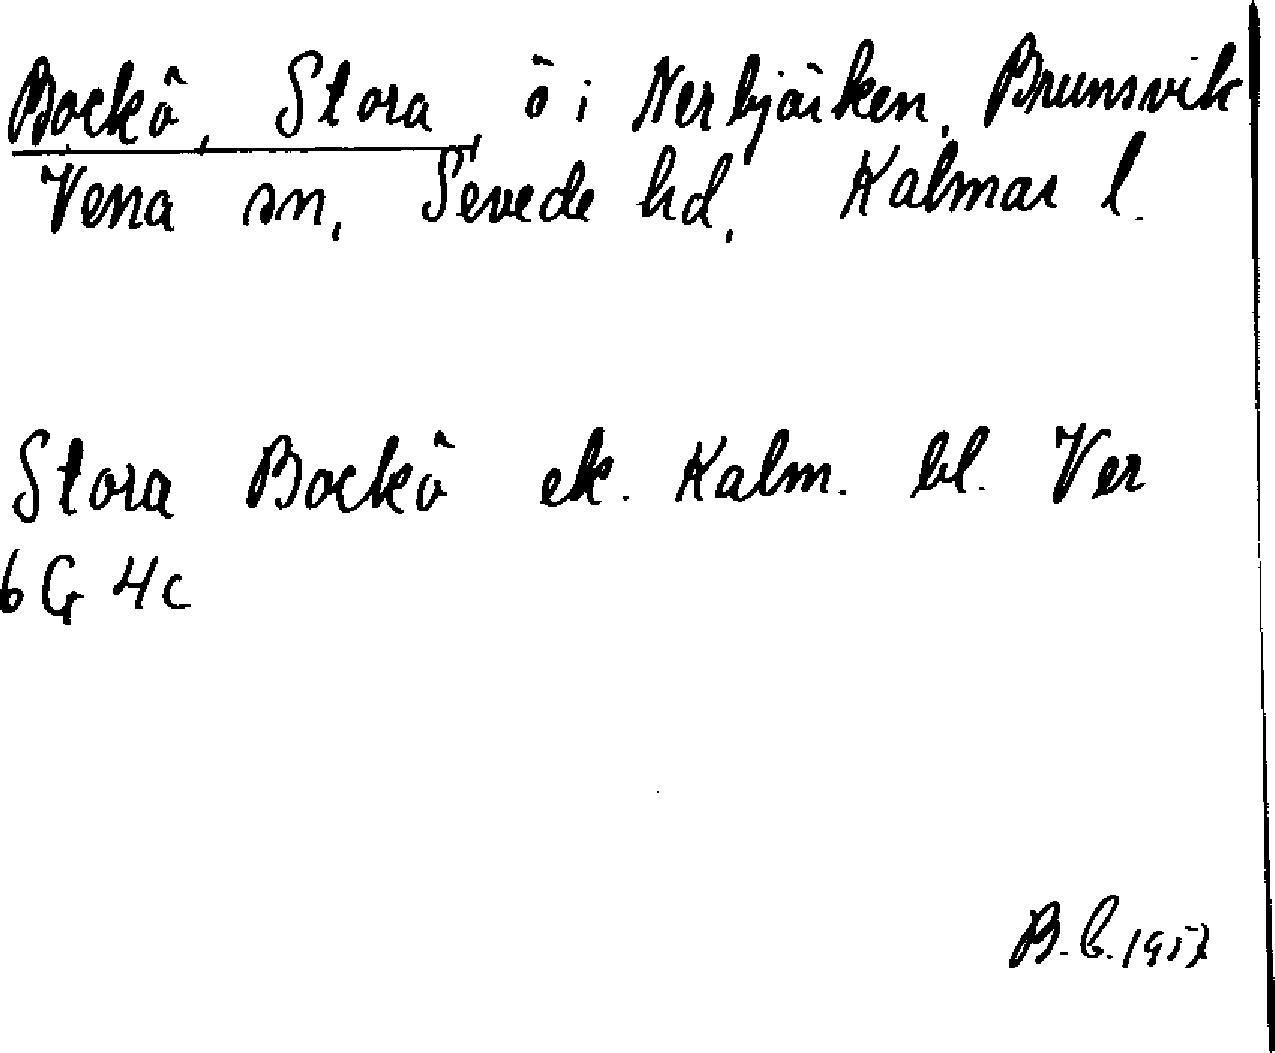 Bockö, Stora, ö i Nerbjärken, Brunsvik
Vena sn, Sevede hd, Kalmar l.
Stora Bockö ek. Kalm. bl. Ver
6 G 4c
B.E. 1957